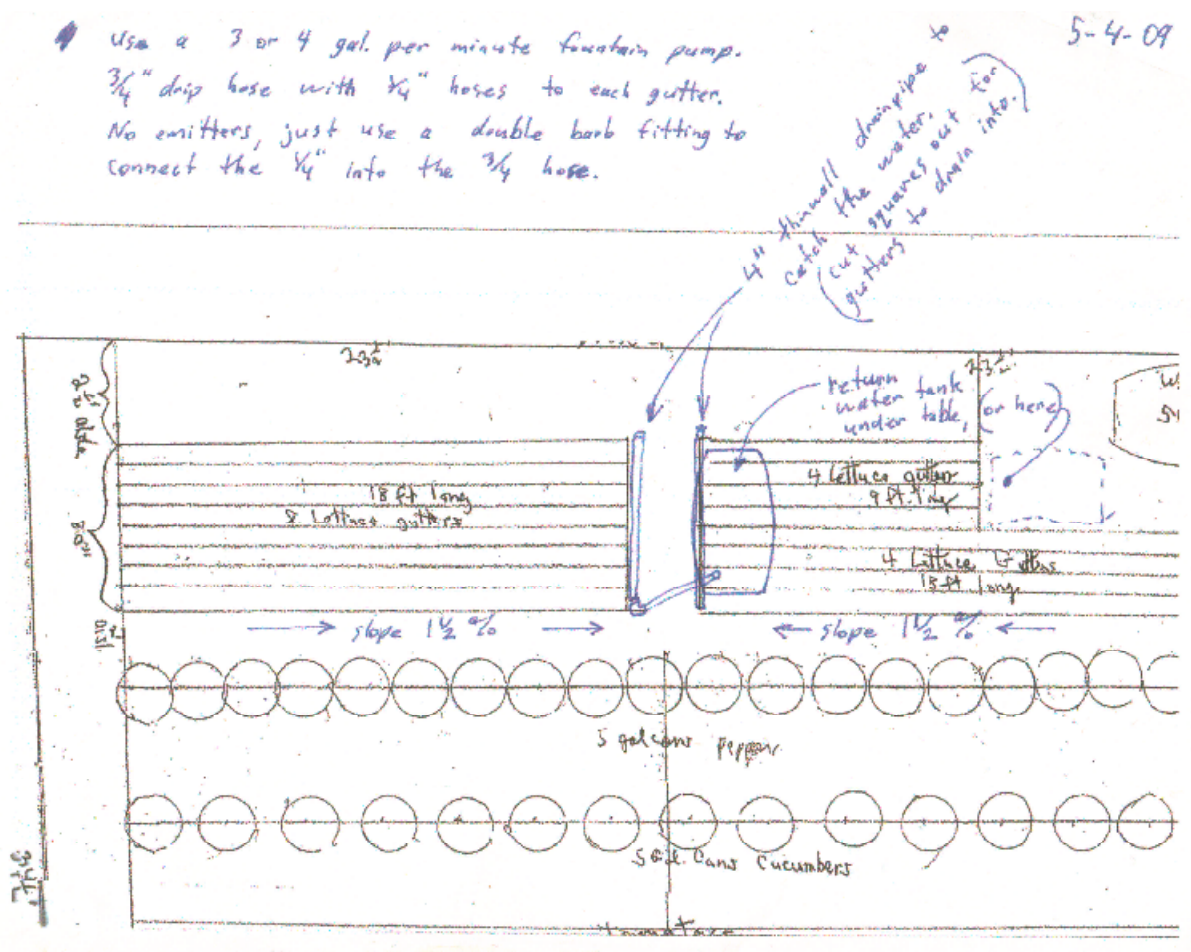 5-4-09
Use a 3 or 4 gal. per minute fountain pump.
3/4" drip hose with 1/4" hoses to each gutter.
No emitters, just use a double barb fitting to
connect the 1/4" into the 3/4 hose.
4" thinwall drainpipe to
catch the water.
(cut squares out for
gutters to drain into.)
return
water tank
under table, (or here)
18 ft long
8 Lettuce gutters
4 Lettuce gutter
9 ft. long
4 Lettuce Gutters
18 ft long
slope 1 1/2 %
slope 1 1/2 %
5 gal cans pepper
5 Gal. Cans Cucumbers